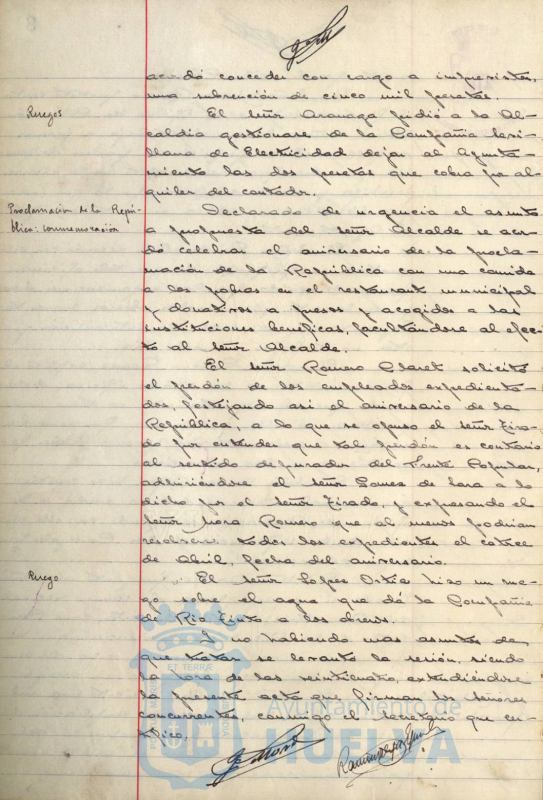 acordó conceder con cargo a imprevistos,
una subvención de cinco mil pesetas.
Ruegos
El señor Aranaga pidió a la Al-
caldía gestionase de la Compañía Sevi-
llana de Electricidad dejar al Ayunta-
miento las dos pesetas que cobra por al-
quiler del contador.
Proclamación de la Repú-
blica: conmemoración
Declarado de urgencia el asunto
a propuesta del señor Alcalde se acor-
dó celebrar el aniversario de la procla-
mación de la República con una comida
a los pobres en el restaurant municipal
y donativos a presos y acogidos a las
instituciones benéficas, facultándose al efec-
to al señor Alcalde.
El señor Romero Claret solicitó
el perdón de los empleados expedienta-
dos, festejando así el aniversario de la
República, a lo que se opuso el señor Tira-
do por entender que tal perdón es contrario
al sentido depurador del Frente Popular,
adhiriéndose el señor Gomez de Lara a lo
dicho por el señor Tirado, y expresando el
señor Mora Romero que al menos podrian
resolverse todos los expedientes el catorce
de Abril, fecha del aniversario.
Ruego
El señor Lopez Ortiz hizo un rue-
go sobre el agua que dá la Compañia
de Rio Tinto a los obreros.
Y no habiendo mas asuntos de
que tratar se levantó la sesión, siendo
la hora de las veinticuatro, extendiéndose
la presente acta que firman los señores
concurrentes, conmigo el Secretario que cer-
tifico.
ET TERRÆ
Ayuntamiento de
HUELVA